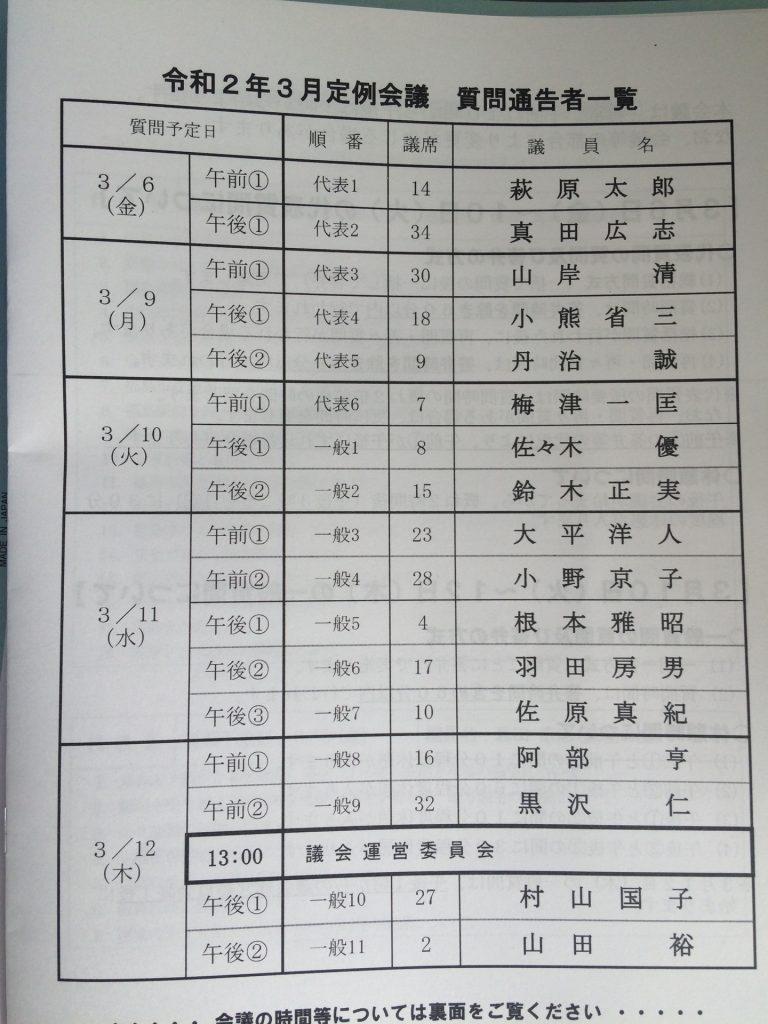 令和２年３月定例会議　質問通告者一覧
質問予定日　順　番　議席　議　員　名
３／６（金）　午前①　代表1　14　萩原太郎
午後①　代表2　34　真田広志
３／９（月）　午前①　代表3　30　山岸　清
午後①　代表4　18　小熊省三
午後②　代表5　9　丹治　誠
３／10（火）　午前①　代表6　7　梅津一匡
午後①　一般1　8　佐々木　優
午後②　一般2　15　鈴木正実
３／11（水）　午前①　一般3　23　大平洋人
午前②　一般4　28　小野京子
午後①　一般5　4　根本雅昭
午後②　一般6　17　羽田房男
午後③　一般7　10　佐原真紀
３／12（木）　午前①　一般8　16　阿部　亨
午前②　一般9　32　黒沢　仁
13：00　議会運営委員会
午後①　一般10　27　村山国子
午後②　一般11　2　山田　裕
・・・・・ 会議の時間等については裏面をご覧ください ・・・・・
MADE IN JAPAN